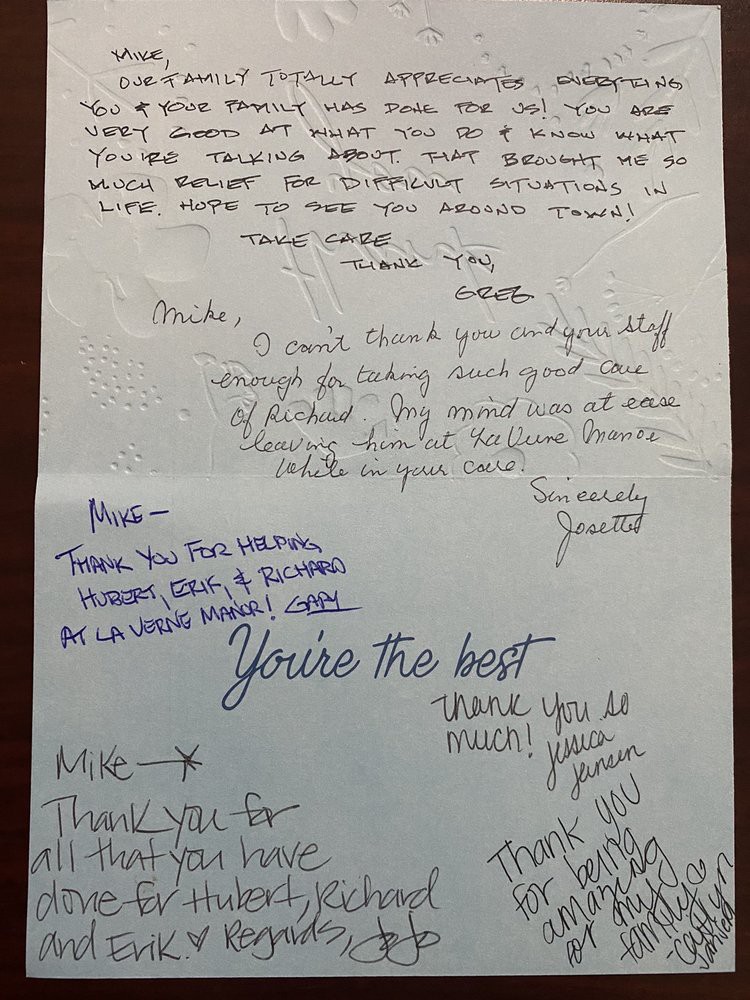 MIKE,
OUR FAMILY TOTALLY APPRECIATES EVERYTHING
YOU & YOUR FAMILY HAS DONE FOR US! YOU ARE
VERY GOOD AT WHAT YOU DO & KNOW WHAT
YOU'RE TALKING ABOUT. THAT BROUGHT ME SO
MUCH RELIEF FOR DIFFICULT SITUATIONS IN
LIFE. HOPE TO SEE YOU AROUND TOWN!
TAKE CARE
THANK YOU,
GREG
Mike,
I can't thank you and your staff
enough for taking such good care
of Richard. My mind was at ease
leaving him at LaVerne Manor
while in your care.
Sincerely
Josette
MIKE—
THANK YOU FOR HELPING
HUBERT, ERIK, & RICHARD
AT LA VERNE MANOR! GARY
You're the best
Thank you so
much! Jessica
Jensen
Mike—
Thank you for
all that you have
done for Hubert, Richard
and Erik. ♡ Regards, JoJo
Thank you
for being
amazing
for my
family
-Caitlyn